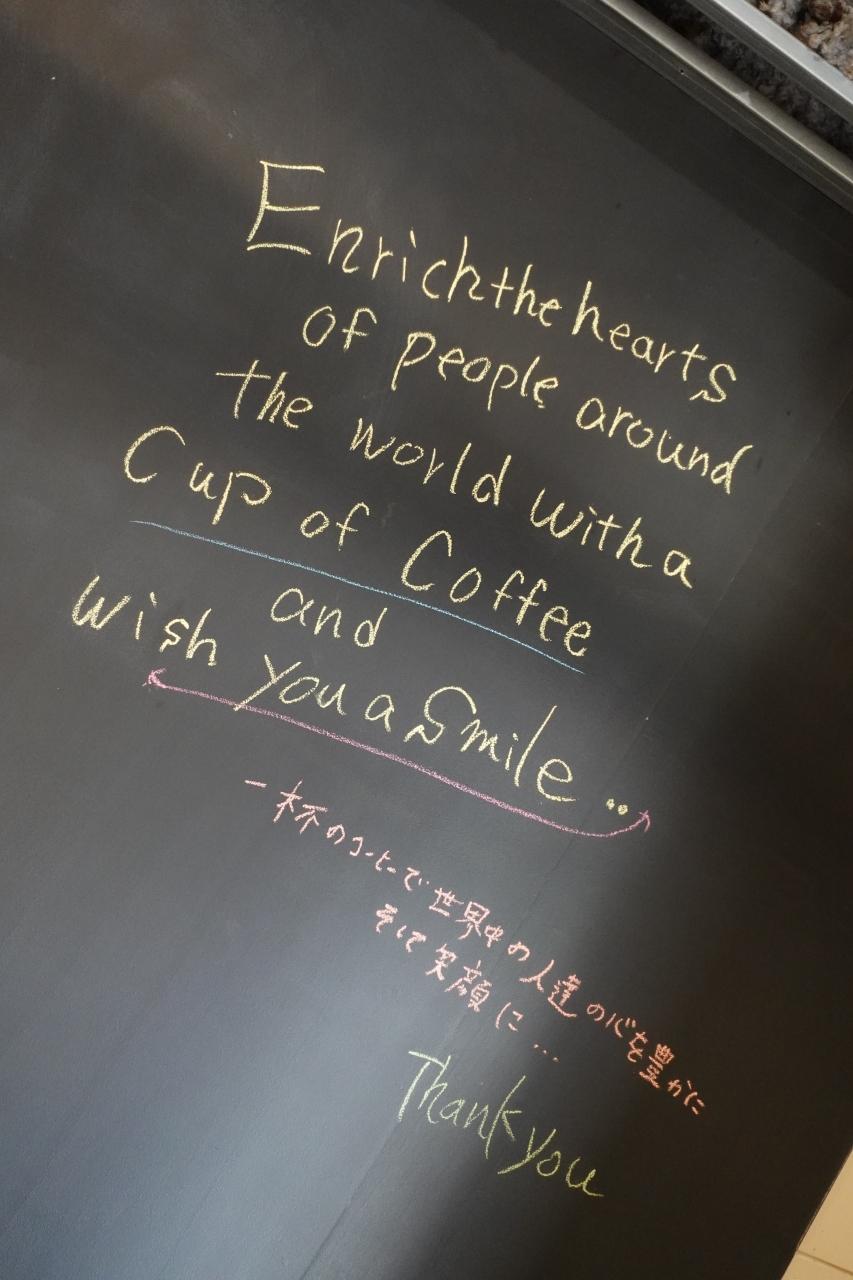 Enrich the hearts
of people around
the world with a
Cup of Coffee
and
wish you a Smile..
一杯のコーヒーで世界中の人達の心を豊かに
そして笑顔に...
Thank you